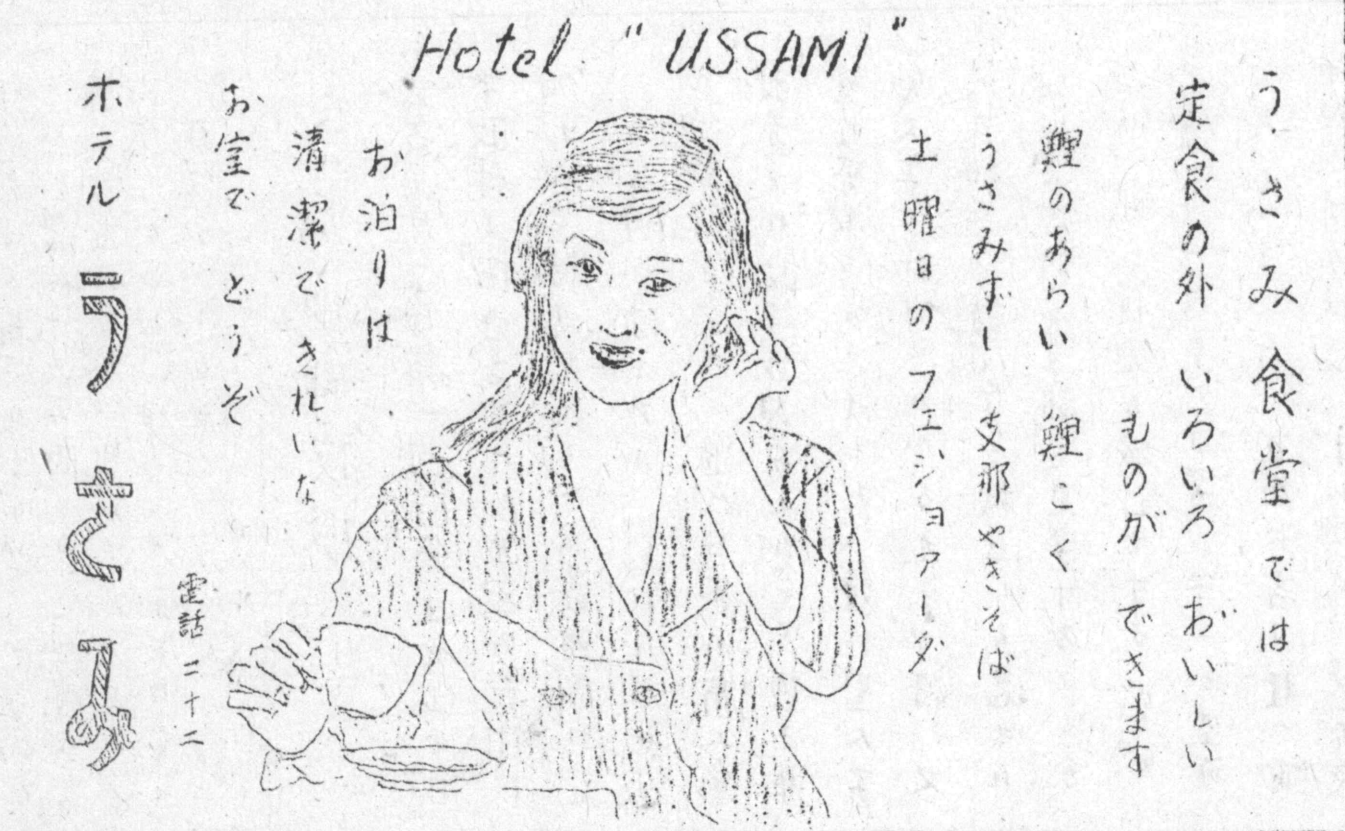 Hotel "USSAMI"
うさみ食堂では
定食の外 いろいろ おいしい
ものが できます
鯉のあらい 鯉こく
うさみずし 支那やきそば
土曜日のフェジョアーダ
お泊りは
清潔で きれいな
お室で どうぞ
電話 二十二
ホテル うさみ